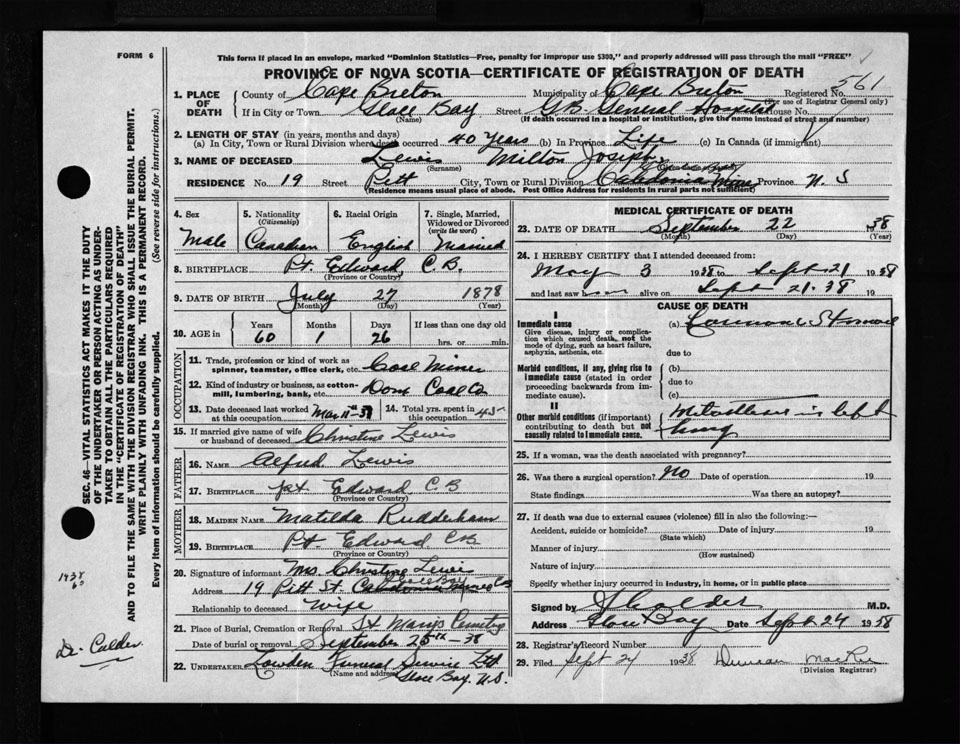 FORM 6
This form if placed in an envelope, marked "Dominion Statistics—Free, penalty for improper use $300," and properly addressed will pass through the mail "FREE"
PROVINCE OF NOVA SCOTIA—CERTIFICATE OF REGISTRATION OF DEATH
1. PLACE OF DEATH County of Cape Breton Municipality of Cape Breton Registered No. 561
(For use of Registrar General only)
If in City or Town Glace Bay Street G.B. General Hospital House No.
(Name) (If death occurred in a hospital or institution, give the name instead of street and number)
2. LENGTH OF STAY (in years, months and days)
(a) In City, Town or Rural Division where death occurred 40 Years (b) In Province Life (c) In Canada (if immigrant)
3. NAME OF DECEASED Lewis Milton Joseph
(Surname)
RESIDENCE No. 19 Street Pitt City, Town or Rural Division Caledonia Mines Province N. S
(Residence means usual place of abode. Post Office Address for residents in rural parts not sufficient)
4. Sex Male
5. Nationality (Citizenship) Canadian
6. Racial Origin English
7. Single, Married, Widowed or Divorced (write the word) Married
8. BIRTHPLACE Pt. Edward, C.B.
(Province or Country)
9. DATE OF BIRTH July 27 1878
(Month) (Day) (Year)
10. AGE in Years 60 Months 1 Days 26 If less than one day old hrs. or min.
OCCUPATION
11. Trade, profession or kind of work as spinner, teamster, office clerk, etc. Coal Miner
12. Kind of industry or business, as cotton-mill, lumbering, bank, etc. Dom Coal Co
13. Date deceased last worked at this occupation Mar 11th 38
14. Total yrs. spent in this occupation 45
15. If married give name of wife or husband of deceased Christine Lewis
FATHER
16. NAME Alfred Lewis
17. BIRTHPLACE Pt Edward C B
(Province or Country)
MOTHER
18. MAIDEN NAME Matilda Rudderham
19. BIRTHPLACE Pt. Edward CB
(Province or Country)
20. Signature of informant Mrs. Christine Lewis
Glace Bay
Address 19 Pitt St. Caledonia Mines C.B
Relationship to deceased Wife
21. Place of Burial, Cremation or Removal St Marys Cemetery
Date of burial or removal September 25th - 38
22. UNDERTAKER Lowden Funeral Service Ltd
(Name and address) Glace Bay, N.S.
MEDICAL CERTIFICATE OF DEATH
23. DATE OF DEATH September 22 1938
(Month) (Day) (Year)
24. I HEREBY CERTIFY that I attended deceased from:
May 3 1938 to Sept 21 1938
and last saw h alive on Sept 21. 38 19
CAUSE OF DEATH
I
Immediate cause (a)
Give disease, injury or complication which caused death, not the mode of dying, such as heart failure, asphyxia, asthenia, etc.
due to
Morbid conditions, if any, giving rise to immediate cause (stated in order proceeding backwards from immediate cause). (b)
due to
(c)
II
Other morbid conditions (if important) contributing to death but not causally related to immediate cause. in left lung
25. If a woman, was the death associated with pregnancy?
26. Was there a surgical operation? No Date of operation 19
State findings Was there an autopsy?
27. If death was due to external causes (violence) fill in also the following:—
Accident, suicide or homicide? Date of injury 19
(State which)
Manner of injury
(How sustained)
Nature of injury
Specify whether injury occurred in industry, in home, or in public place
Signed by Calder M.D.
Address Glace Bay Date Sept 24 1938
28. Registrar's Record Number
29. Filed Sept 24 1938 Duncan MacRae
(Division Registrar)
SEC. 46—VITAL STATISTICS ACT MAKES IT THE DUTY
OF THE UNDERTAKER OR PERSON ACTING AS UNDER-
TAKER TO OBTAIN ALL THE PARTICULARS REQUIRED
IN THE "CERTIFICATE OF REGISTRATION OF DEATH"
AND TO FILE THE SAME WITH THE DIVISION REGISTRAR WHO SHALL ISSUE THE BURIAL PERMIT.
WRITE PLAINLY WITH UNFADING INK. THIS IS A PERMANENT RECORD.
Every item of Information should be carefully supplied. (See reverse side for instructions.)
1938
60
Dr. Calder